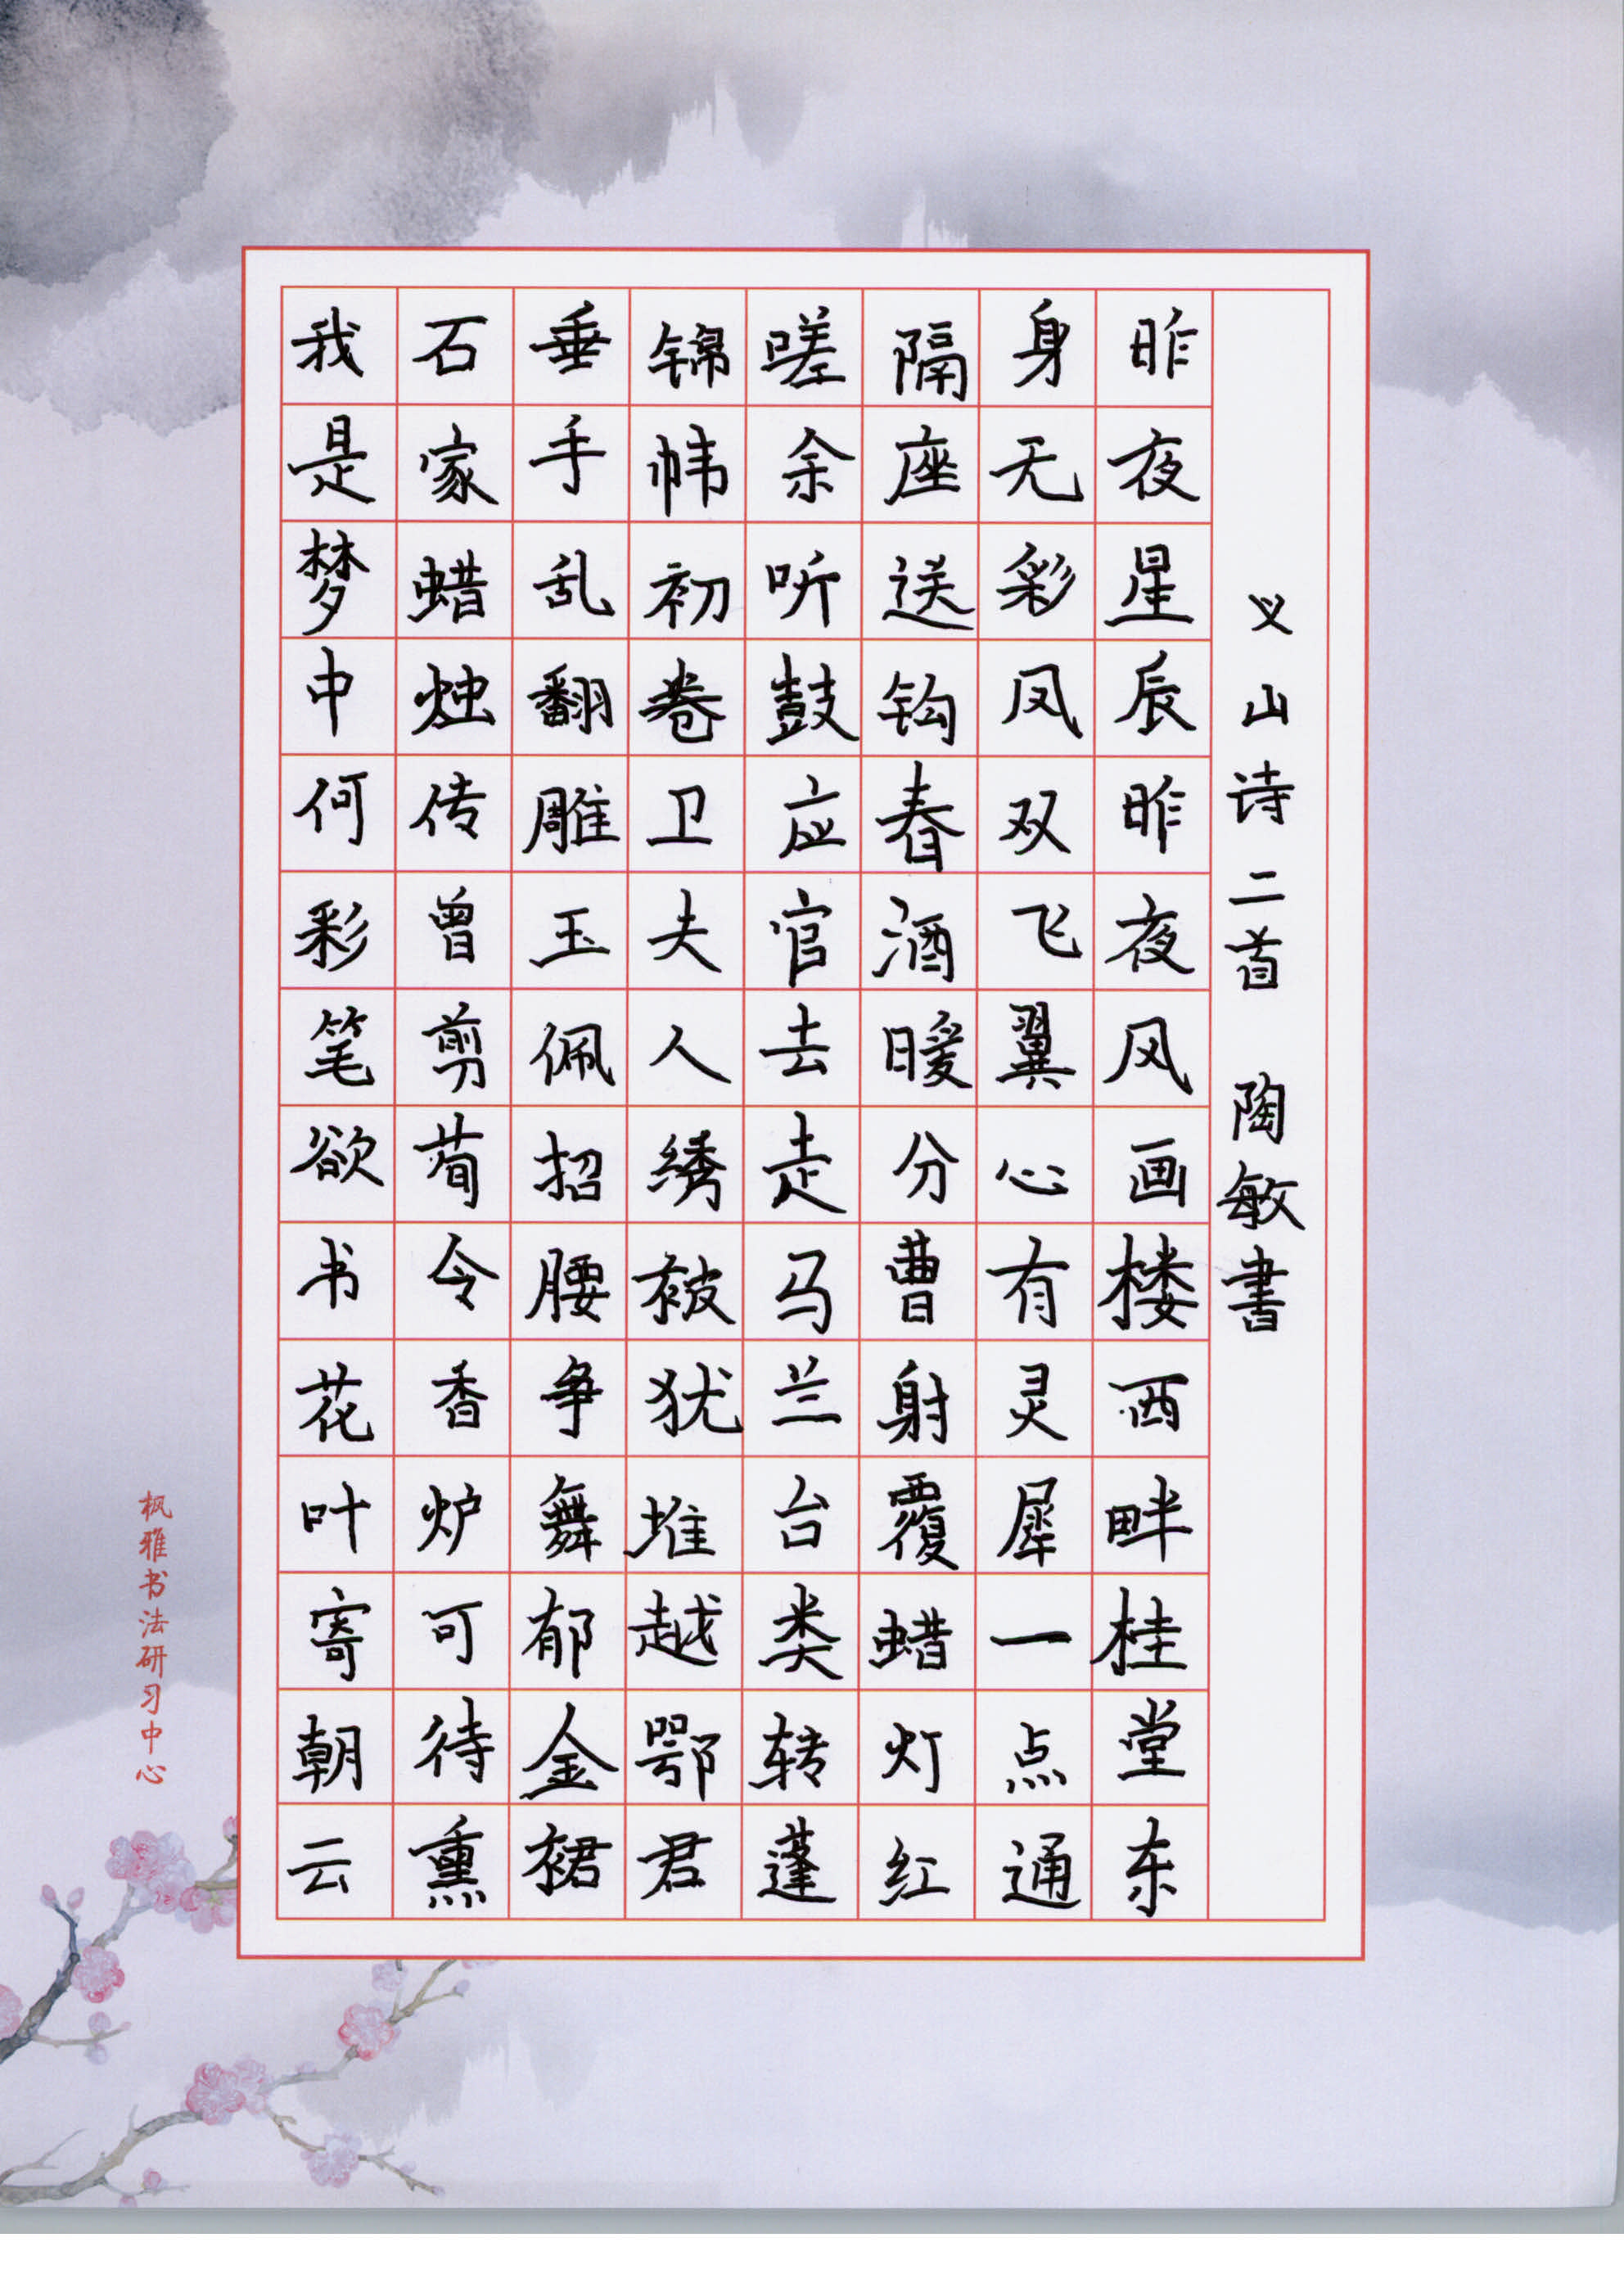 义山诗二首 陶敏書
昨夜星辰昨夜风画楼西畔桂堂东
身无彩凤双飞翼心有灵犀一点通
隔座送钩春酒暖分曹射覆蜡灯红
嗟余听鼓应官去走马兰台类转蓬
锦帏初卷卫夫人绣被犹堆越鄂君
垂手乱翻雕玉佩招腰争舞郁金裙
石家蜡烛传曾剪荀令香炉可待熏
我是梦中何彩笔欲书花叶寄朝云
枫雅书法研习中心